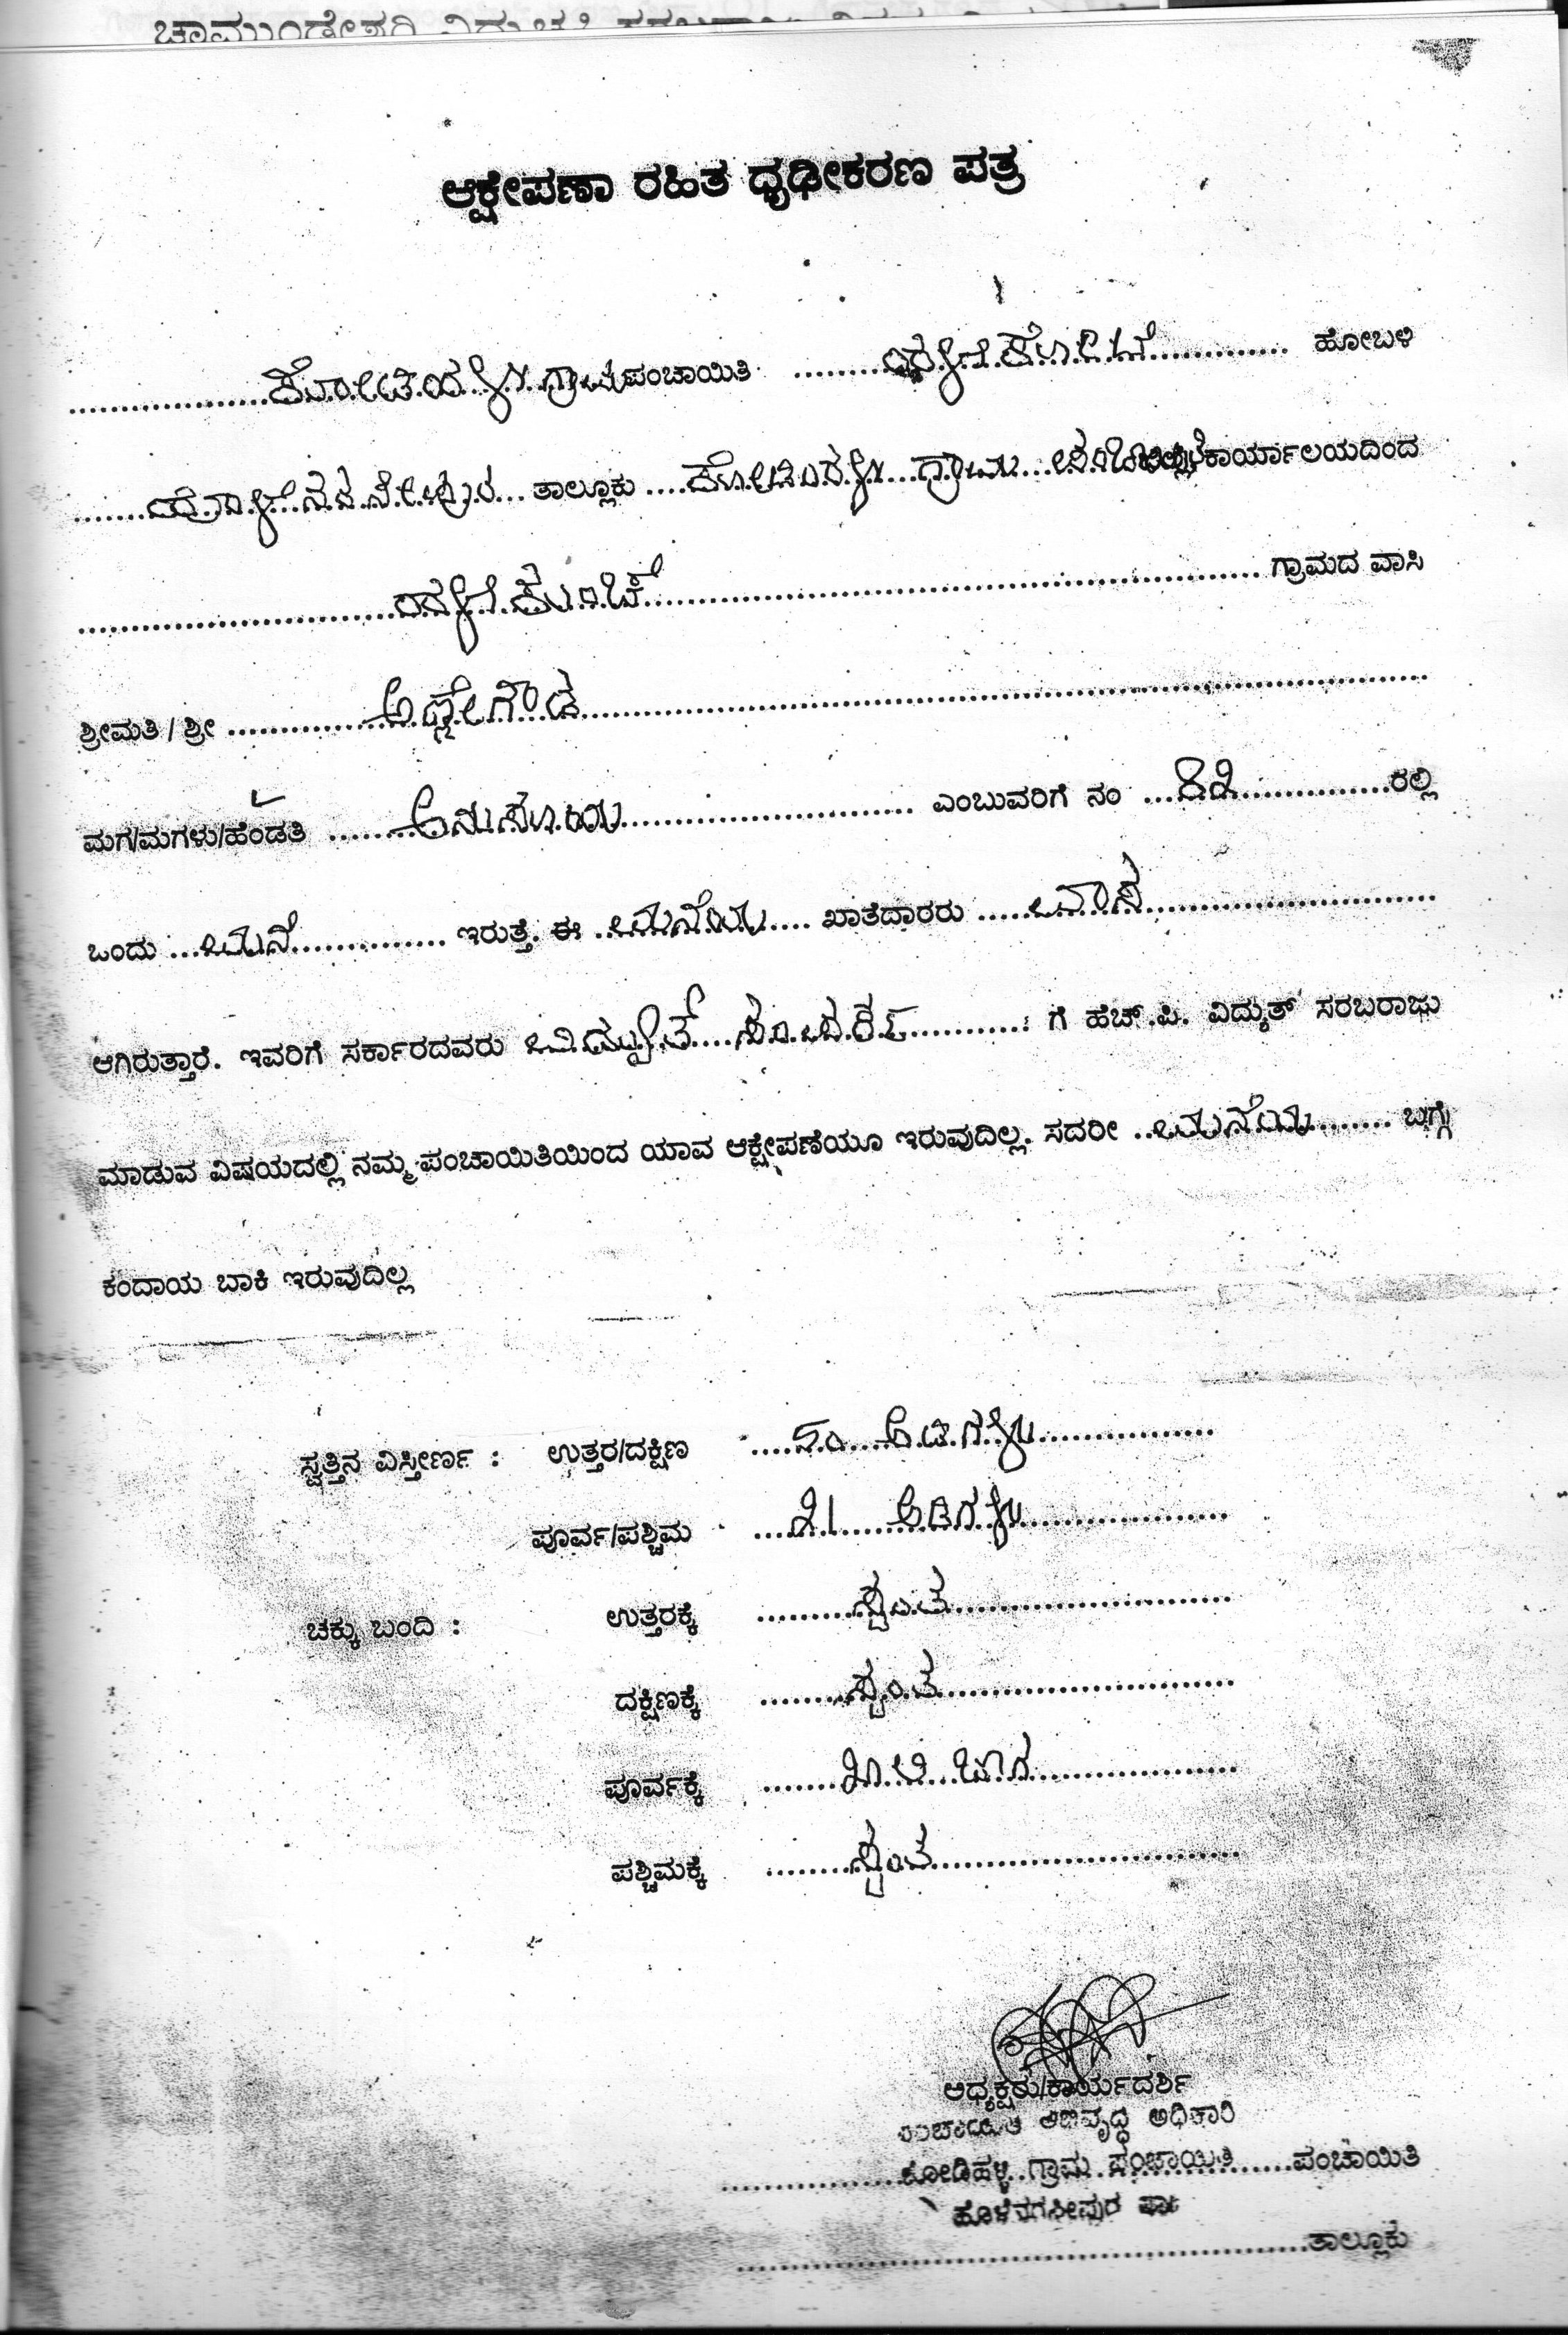 ಆಕ್ಷೇಪಣಾ ರಹಿತ ಧೃಢೀಕರಣ ಪತ್ರ
ಕೋಡಿಹಳ್ಳಿ ಗ್ರಾಮ ಪಂಚಾಯಿತಿ ಹಳ್ಳಿಮೈಸೂರು ಹೋಬಳಿ
ಹೊಳೆನರಸೀಪುರ ತಾಲ್ಲೂಕು ಕೋಡಿಹಳ್ಳಿ ಗ್ರಾಮ ಪಂಚಾಯಿತಿ ಕಾರ್ಯಾಲಯದಿಂದ
ಗ್ರಾಮದ ವಾಸಿ
ಶ್ರೀಮತಿ / ಶ್ರೀ ಅಣ್ಣೇಗೌಡ
ಮಗ/ಮಗಳು/ಹೆಂಡತಿ ಅನುಸೂಯ ಎಂಬುವರಿಗೆ ನಂ ರಲ್ಲಿ
ಒಂದು ಮನೆ ಇರುತ್ತೆ. ಈ ಮನೆಯ ಖಾತೆದಾರರು ವಾಸ
ಆಗಿರುತ್ತಾರೆ. ಇವರಿಗೆ ಸರ್ಕಾರದವರು ವಿದ್ಯುತ್ ಸಂಪರ್ಕ ಗೆ ಹೆಚ್.ಪಿ. ವಿದ್ಯುತ್ ಸರಬರಾಜು
ಮಾಡುವ ವಿಷಯದಲ್ಲಿ ನಮ್ಮ ಪಂಚಾಯಿತಿಯಿಂದ ಯಾವ ಆಕ್ಷೇಪಣೆಯೂ ಇರುವುದಿಲ್ಲ. ಸದರೀ ಮನೆಯ ಬಗ್ಗೆ
ಕಂದಾಯ ಬಾಕಿ ಇರುವುದಿಲ್ಲ
ಸ್ವತ್ತಿನ ವಿಸ್ತೀರ್ಣ : ಉತ್ತರ/ದಕ್ಷಿಣ ೫೦ ಅಡಿಗಳು
ಪೂರ್ವ/ಪಶ್ಚಿಮ ೨೧ ಅಡಿಗಳು
ಚಕ್ಕು ಬಂದಿ : ಉತ್ತರಕ್ಕೆ ಸ್ವಂತ
ದಕ್ಷಿಣಕ್ಕೆ ಸ್ವಂತ
ಪೂರ್ವಕ್ಕೆ ಖಾಲಿ ಜಾಗ
ಪಶ್ಚಿಮಕ್ಕೆ ಸ್ವಂತ
ಅಧ್ಯಕ್ಷರು/ಕಾರ್ಯದರ್ಶಿ
ಪಂಚಾಯಿತಿ ಅಭಿವೃದ್ಧಿ ಅಧಿಕಾರಿ
ಕೋಡಿಹಳ್ಳಿ ಗ್ರಾಮ ಪಂಚಾಯಿತಿ ಪಂಚಾಯಿತಿ
ಹೊಳೆನರಸೀಪುರ ತಾ||
ತಾಲ್ಲೂಕು